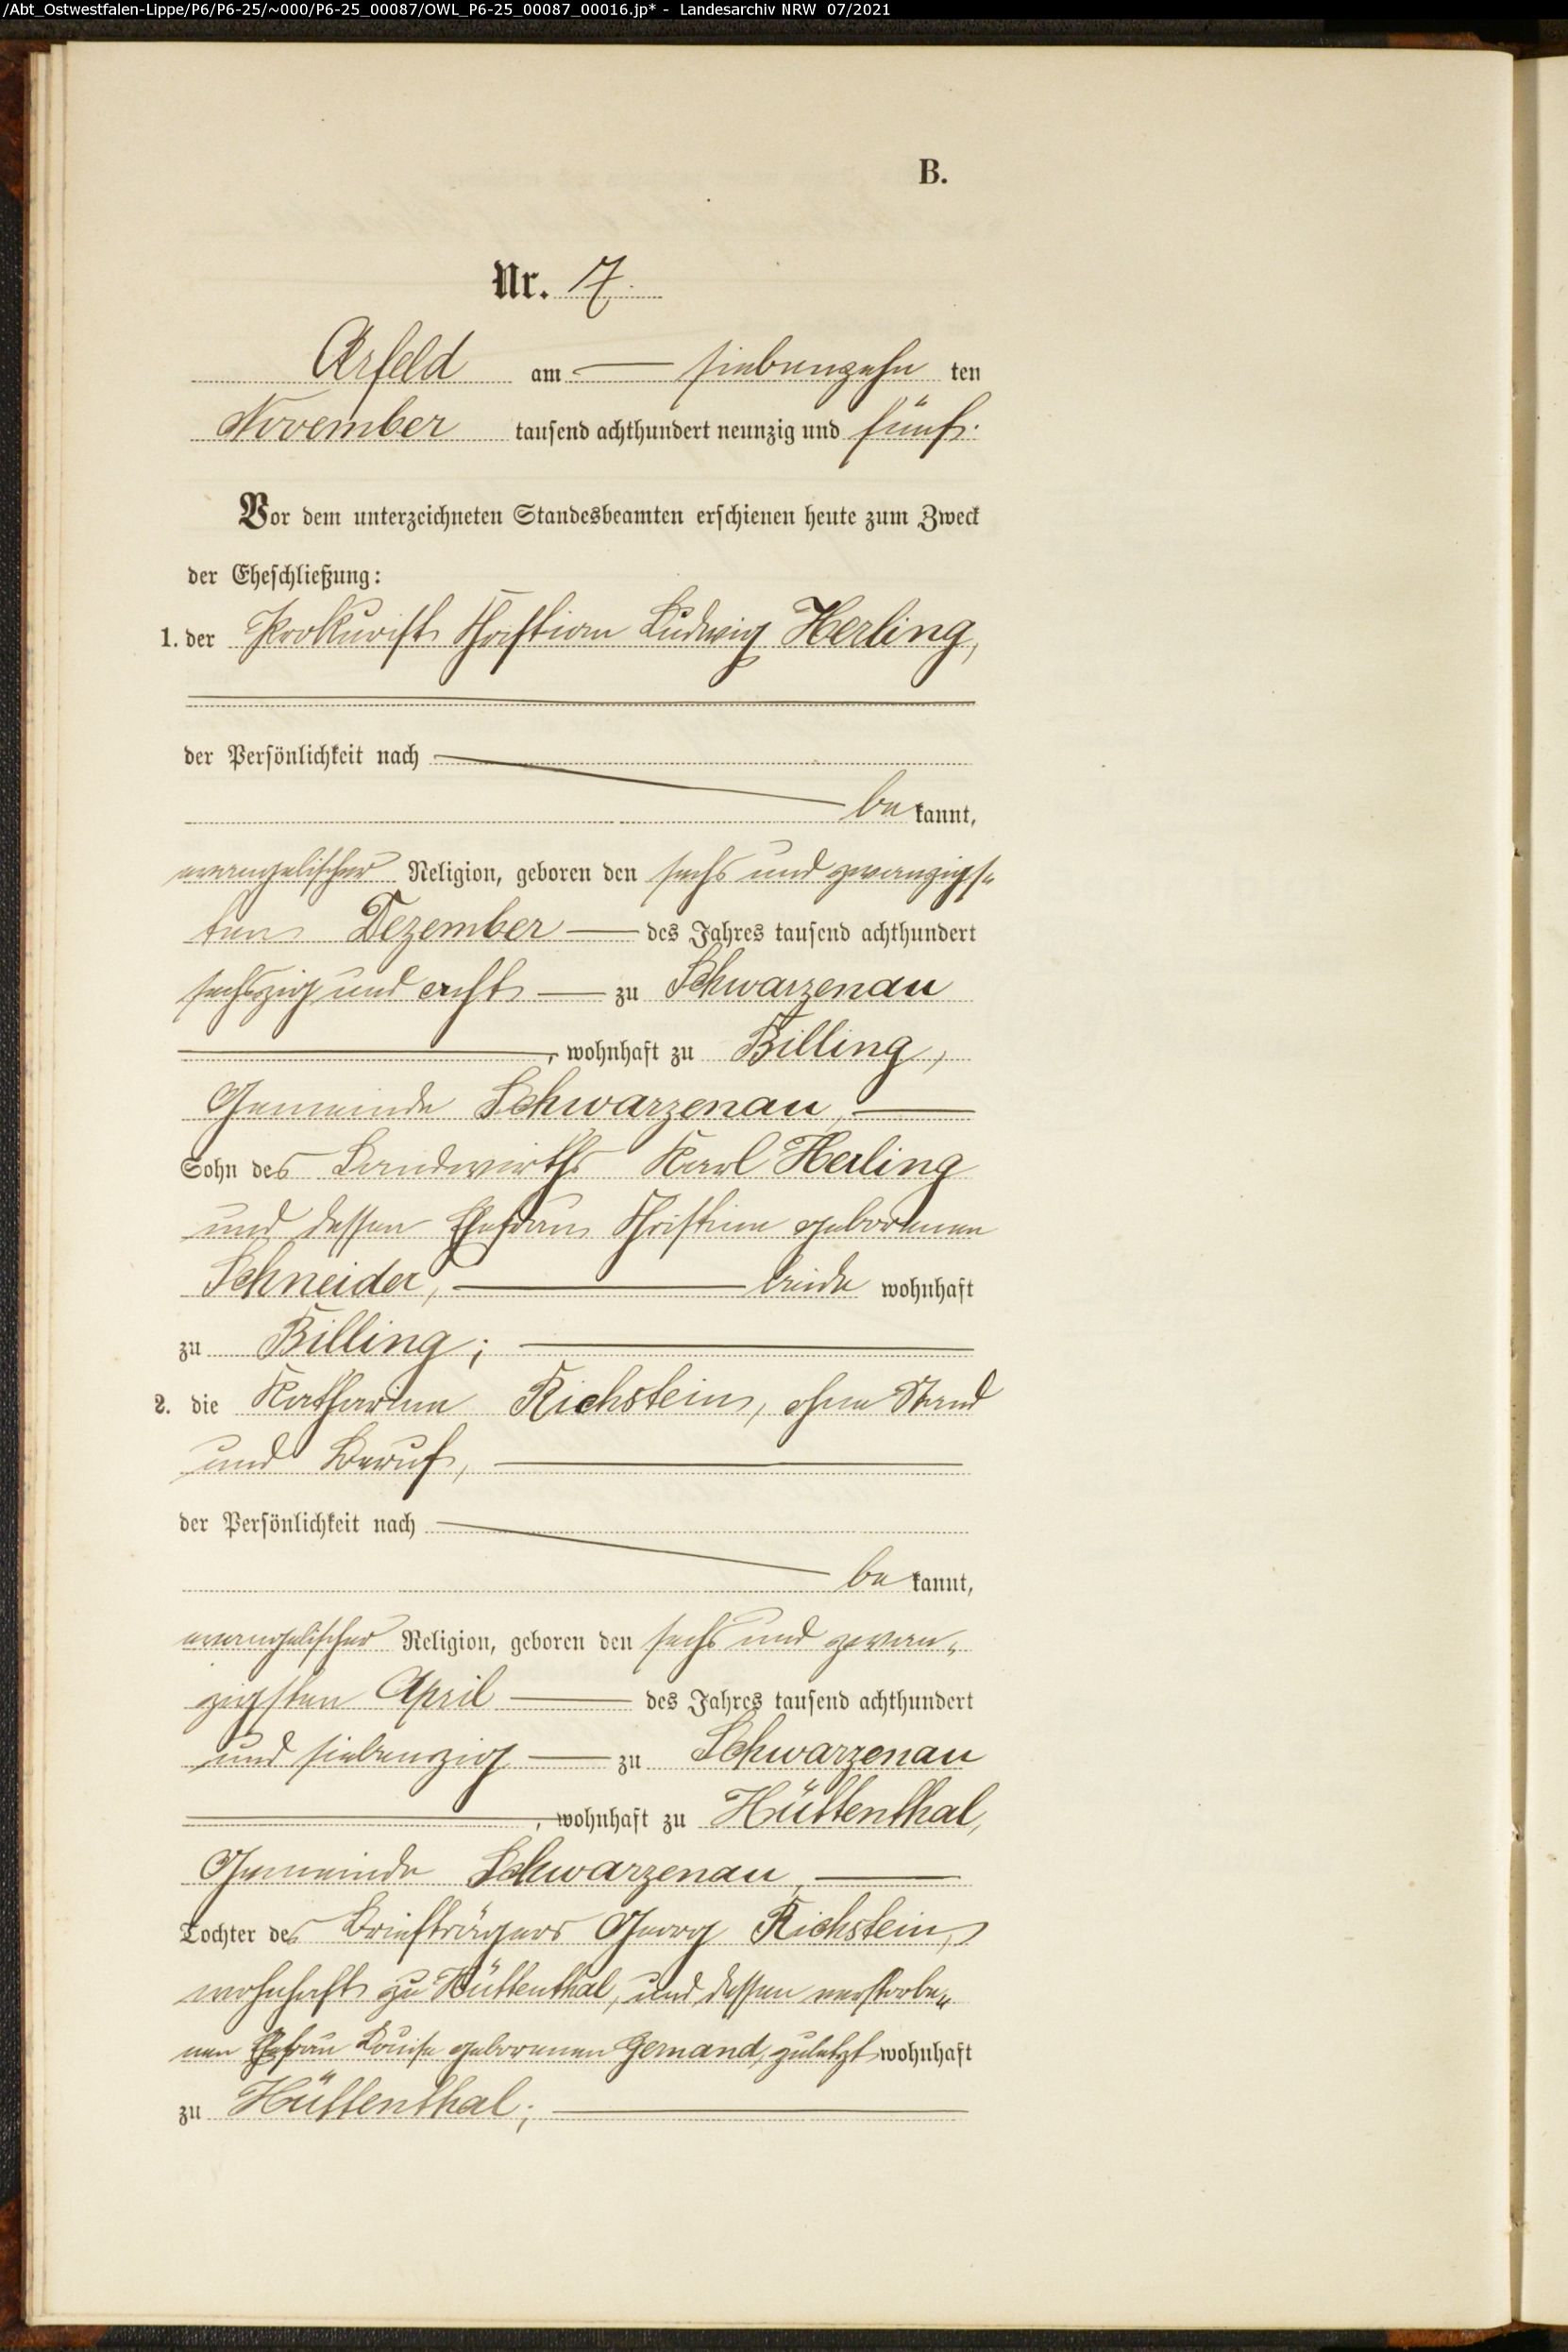 /Abt_Ostwestfalen-Lippe/P6/P6-25/~000/P6-25_00087/OWL_P6-25_00087_00016.jp* - Landesarchiv NRW 07/2021
B.
Nr. 7.
Arfeld am siebenzehn ten
November tausend achthundert neunzig und fünf.
Vor dem unterzeichneten Standesbeamten erschienen heute zum Zweck
der Eheschließung:
1. der Prokurist Christian Ludwig Herling,
der Persönlichkeit nach
be kannt,
evangelischer Religion, geboren den sechs und zwanzigs-
ten Dezember des Jahres tausend achthundert
sechszig und acht zu Schwarzenau
, wohnhaft zu Billing,
Gemeinde Schwarzenau,
Sohn des Landwirths Karl Herling
und dessen Ehefrau Christine geborenen
Schneider, beide wohnhaft
zu Billing;
2. die Katharine Richstein, ohne Stand
und Beruf,
der Persönlichkeit nach
be kannt,
evangelischer Religion, geboren den sechs und zwan-
zigsten April des Jahres tausend achthundert
und siebenzig zu Schwarzenau
, wohnhaft zu Hüttenthal,
Gemeinde Schwarzenau,
Tochter des Briefträgers Georg Richstein,
wohnhaft zu Hüttenthal, und dessen verstorbe-
nen Ehefrau Louise geborenen Gernand, zuletzt wohnhaft
zu Hüttenthal;